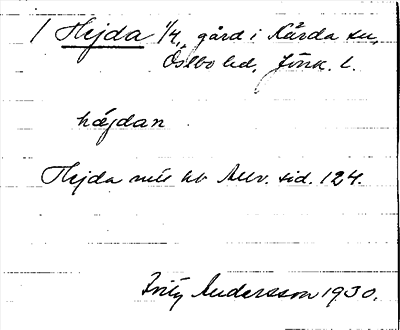 / Hejda 1/4, gård i Kärda sn,
Östbo hd, Jönk. l.
hæjdan
Hejda
sid. 124.
Fritz Andersson 1930.